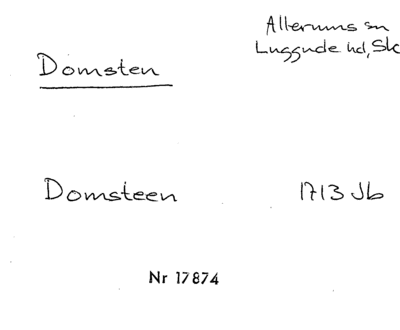 Allerums sn
Luggude hd, Sk
Domsten
Domsteen 1713 Jb
Nr 17874